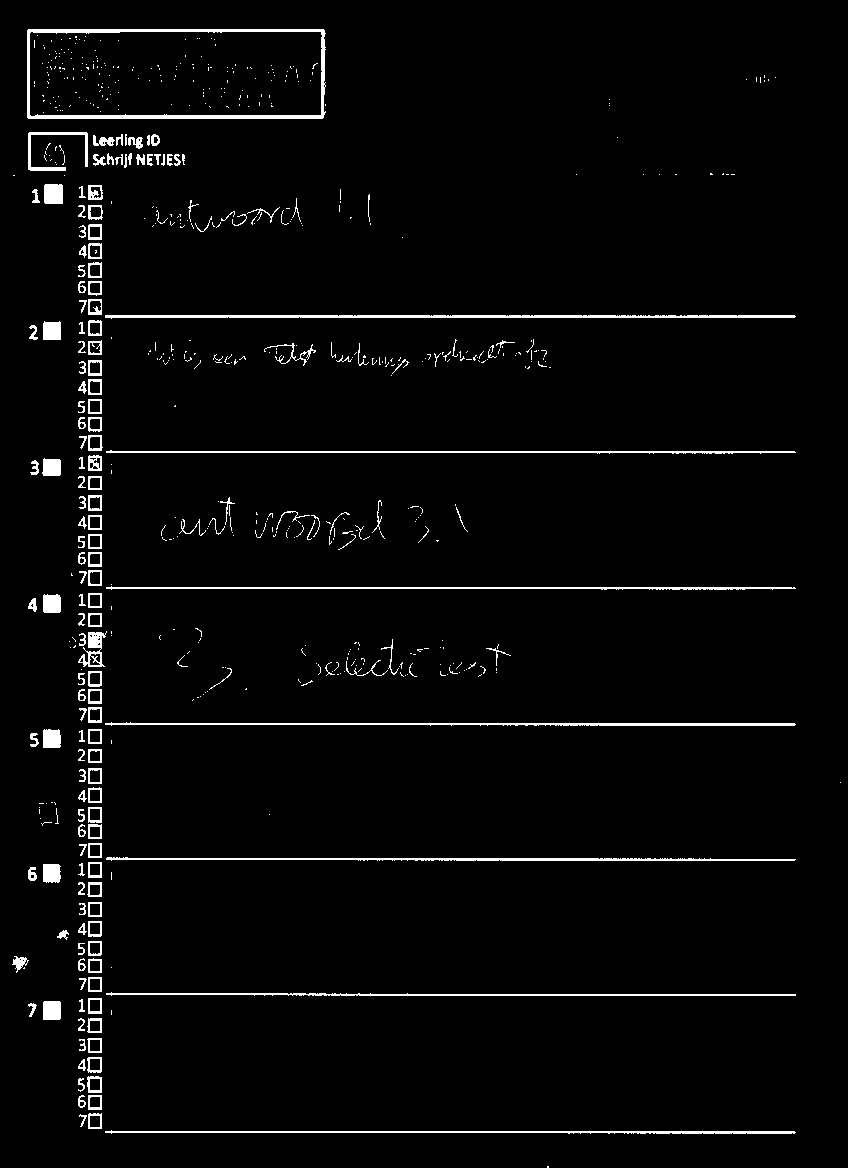 Leerling ID
Schrijf NETJES!
1
1
2
3
4
5
6
7
antwoord 1.1
2
1
2
3
4
5
6
7
dit is een Tekst herkenings opdracht
3
1
2
3
4
5
6
7
antwoord 3.1
4
1
2
3
4
5
6
7
2, Selectie test
5
1
2
3
4
5
6
7
6
1
2
3
4
5
6
7
7
1
2
3
4
5
6
7